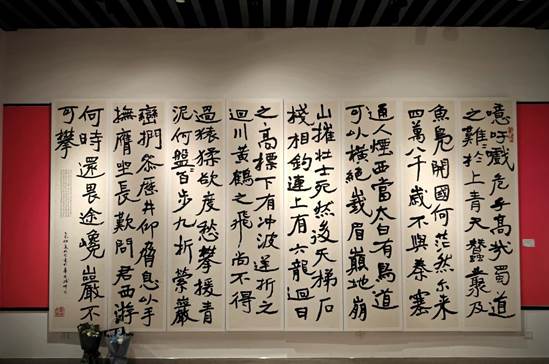 噫吁戲危乎高哉蜀道
之難〻於上青天蠶叢及
魚鳧開國何茫然尓来
四萬八千歲不與秦塞
通人煙西當太白有鳥道
可以橫絕峨眉巔地崩
山摧壯士死然後天梯石
棧相鈎連上有六龍迴日
之高標下有冲波逆折之
迴川黃鶴之飛尚不得
過猿猱欲度愁攀援青
泥何盤〻百步九折縈巖
巒捫參歷井仰脅息以手
撫膺坐長歎問君西游
何時還畏途巉巖不
可攀